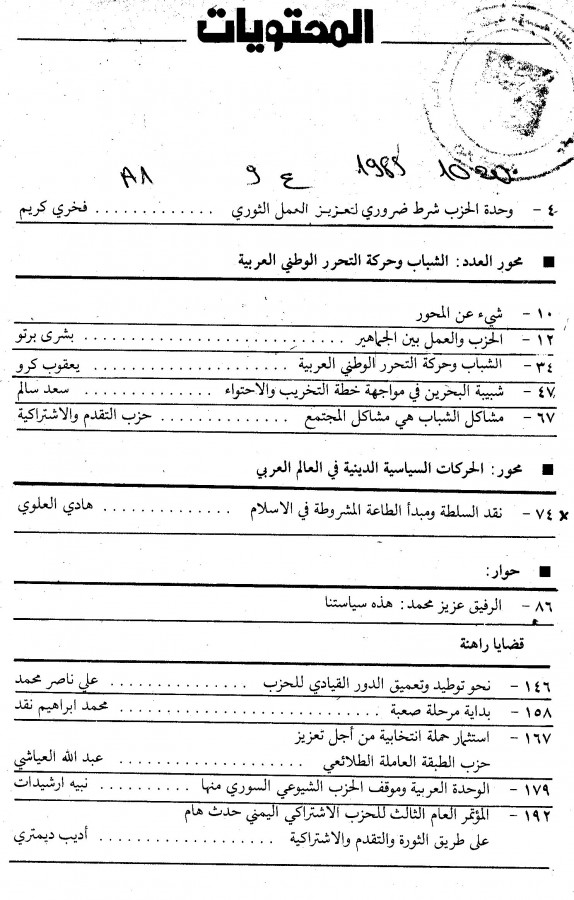 المحتويات
A1 9 ع 1985
٤ - وحدة الحزب شرط ضروري لتعزيز العمل الثوري . . . . . . . . . . . . . فخري كريم
■ محور العدد: الشباب وحركة التحرر الوطني العربية
١٠ - شيء عن المحور
١٢ - الحزب والعمل بين الجماهير . . . . . . . . . . . . . . . . . . . . بشرى برتو
٣٤ - الشباب وحركة التحرر الوطني العربية . . . . . . . . . . . . . يعقوب كرو
٤٧ - شبيبة البحرين في مواجهة خطة التخريب والاحتواء . . . . . . . . . . . . . سعد سالم
٦٧ - مشاكل الشباب هي مشاكل المجتمع . . . . . . . . . . . . . حزب التقدم والاشتراكية
■ محور: الحركات السياسية الدينية في العالم العربي
x ٧٤ - نقد السلطة ومبدأ الطاعة المشروطة في الاسلام . . . . . . . . . . . . . هادي العلوي
■ حوار:
٨٦ - الرفيق عزيز محمد: هذه سياستنا
قضايا راهنة
١٤٦ - نحو توطيد وتعميق الدور القيادي للحزب . . . . . . . . . . . . . . . علي ناصر محمد
١٥٨ - بداية مرحلة صعبة . . . . . . . . . . . . . . . . . . . . محمد ابراهيم نقد
١٦٧ - استثمار حملة انتخابية من أجل تعزيز
حزب الطبقة العاملة الطلائعي . . . . . . . . . . . . . . . . . عبد الله العياشي
١٧٩ - الوحدة العربية وموقف الحزب الشيوعي السوري منها . . . . . . . . . نبيه ارشيدات
١٩٢ - المؤتمر العام الثالث للحزب الاشتراكي اليمني حدث هام
على طريق الثورة والتقدم والاشتراكية . . . . . . . . . . . . . . . . . . أديب ديمتري